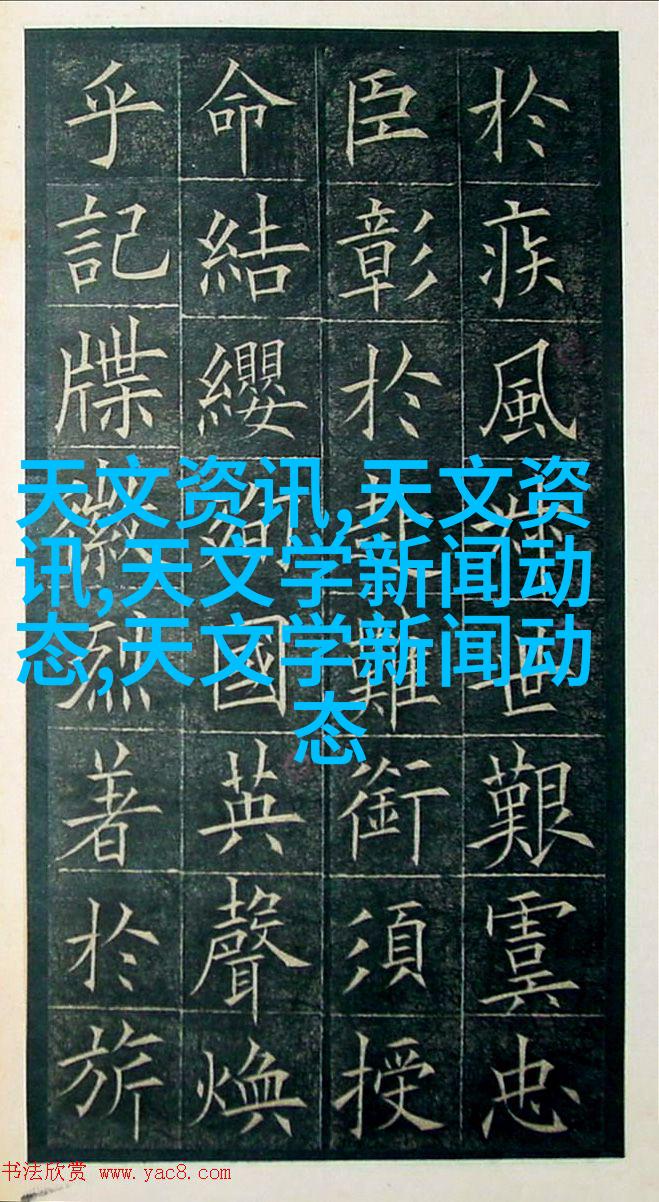 於疾風在世艱虞忠
臣彰於赴難銜須授
命結纓殉國英聲煥
乎記牒徽烈著於旂
天文资讯,天文资
讯,天文学新闻动
态,天文学新闻动
态
书法欣赏 www.yac8.com